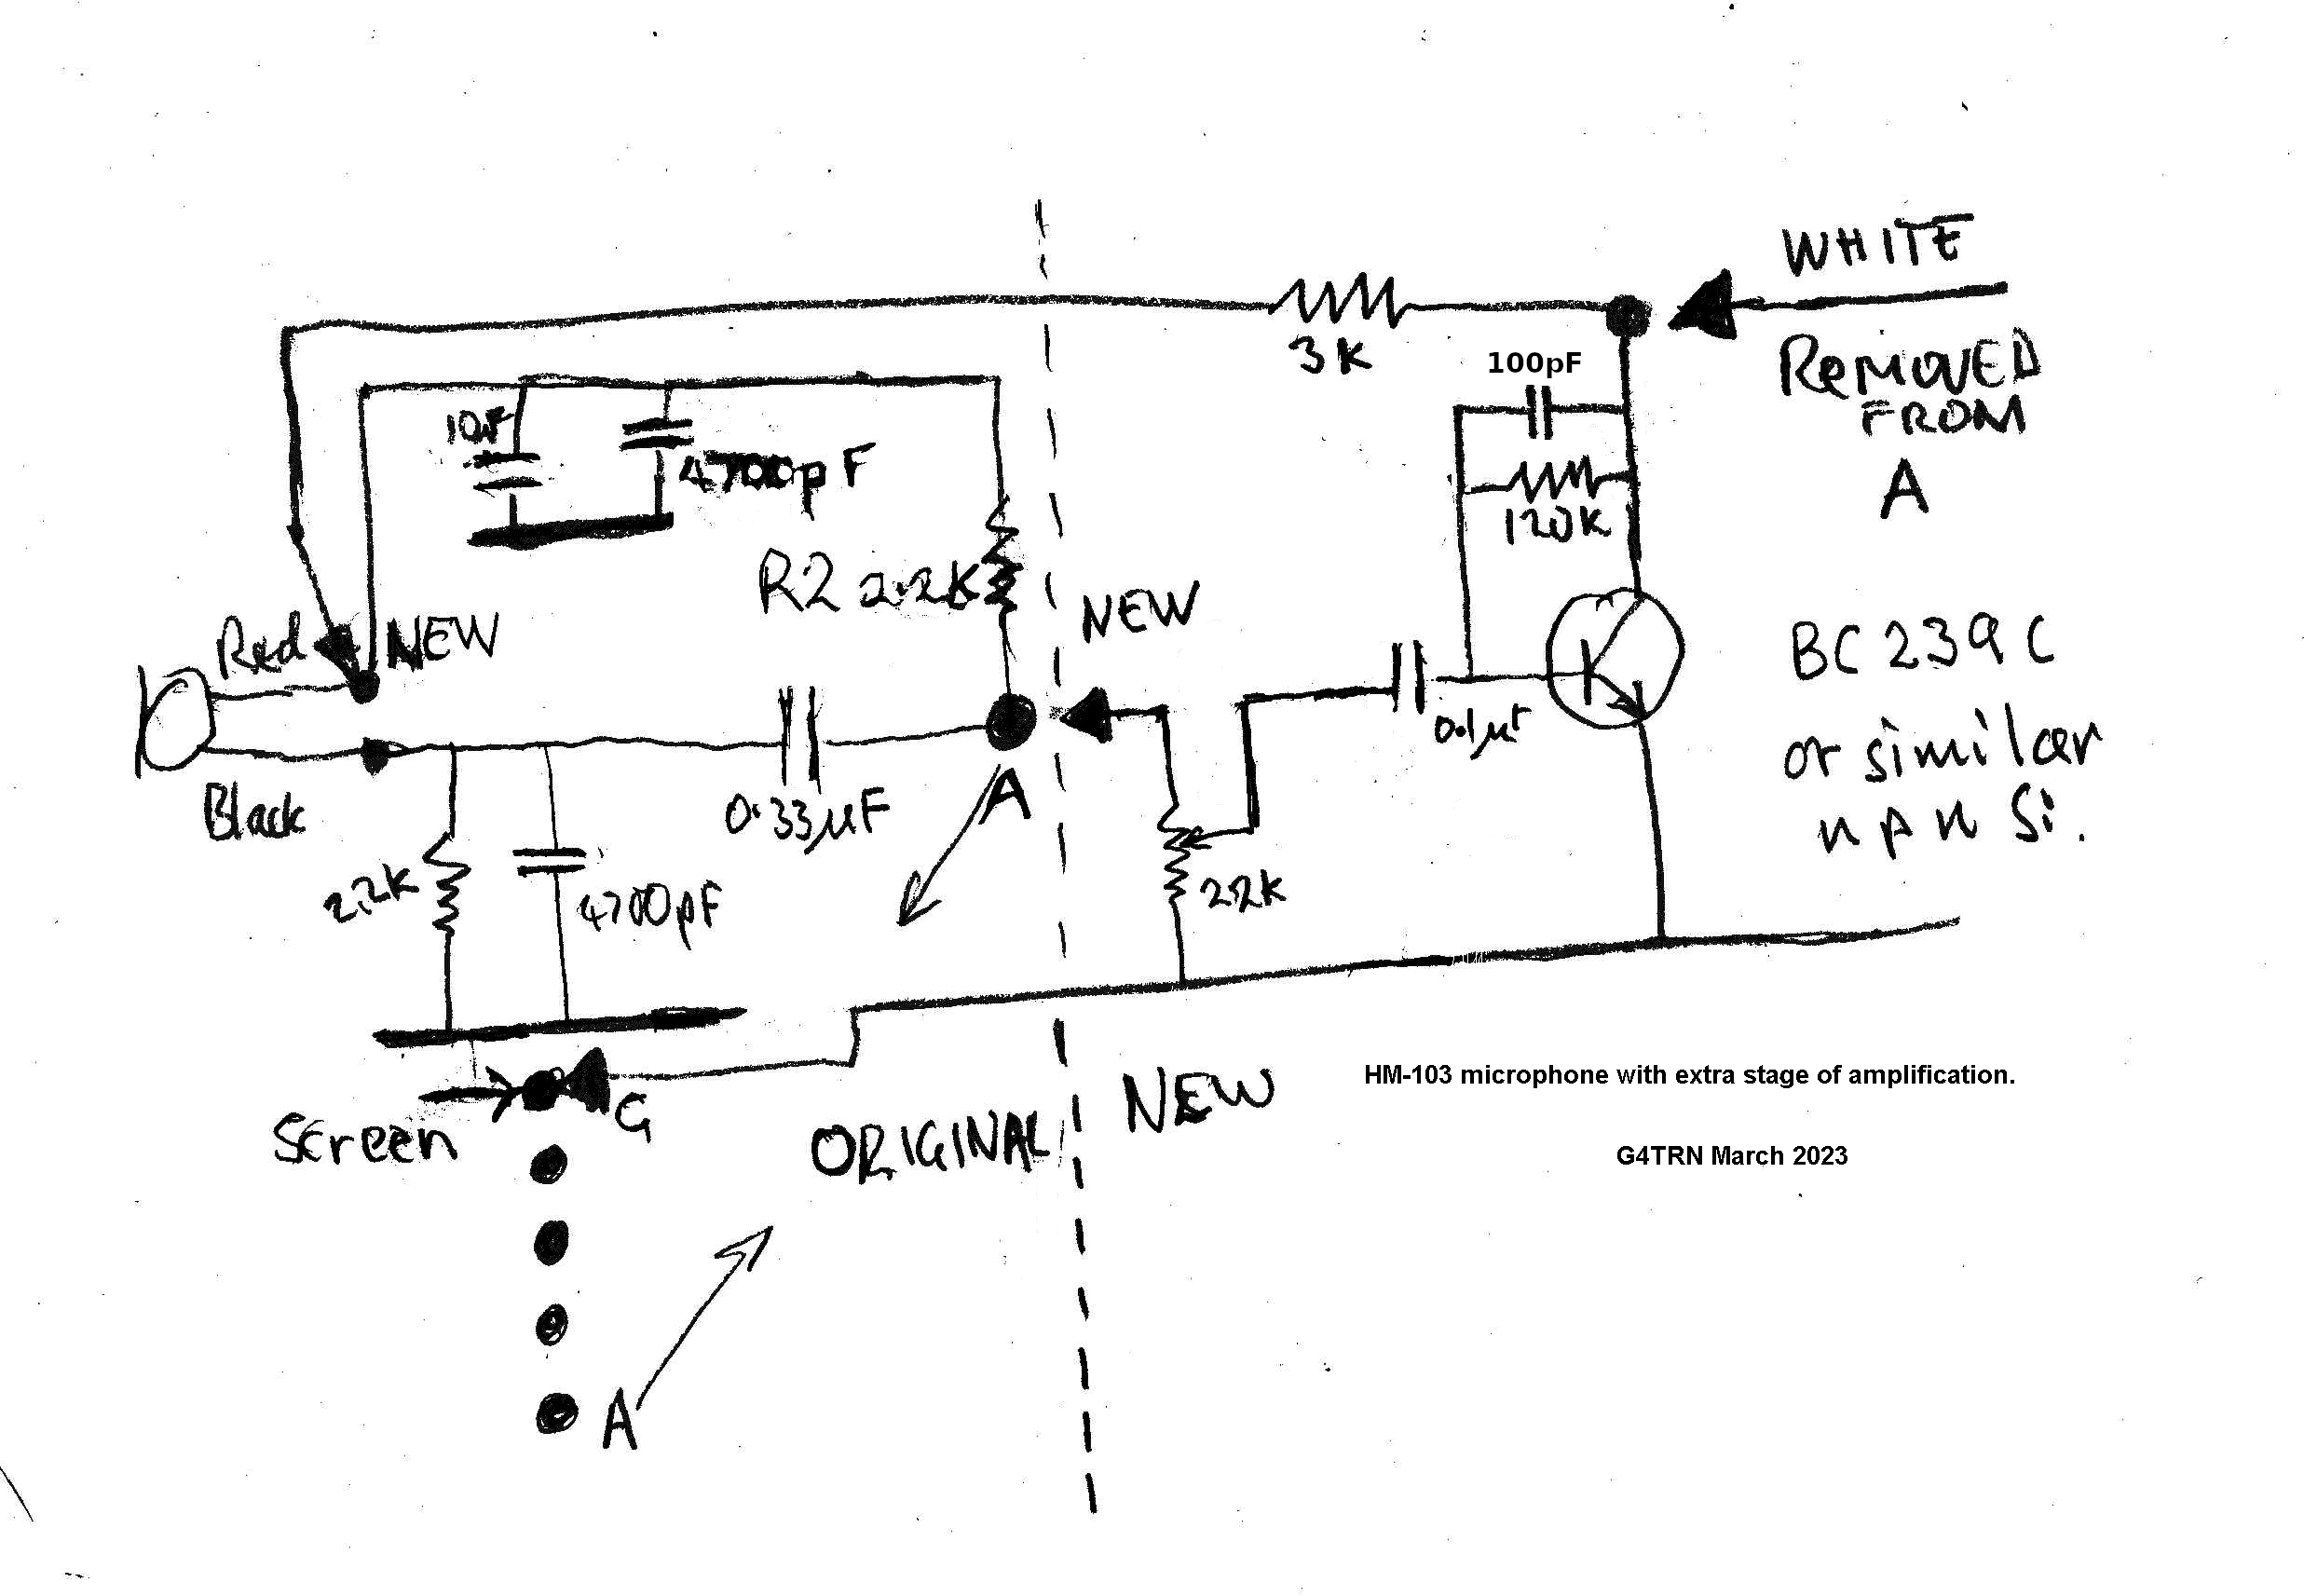 WHITE
3K
100pF
REMOVED
FROM
A
10µF
4700pF
120K
R2 2.2K
NEW
Red
NEW
BC239C
0.1µF
or similar
n p n Si.
Black
0.33µF
A
2.2K
4700pF
22K
HM-103 microphone with extra stage of amplification.
NEW
G
Screen
ORIGINAL
G4TRN March 2023
A